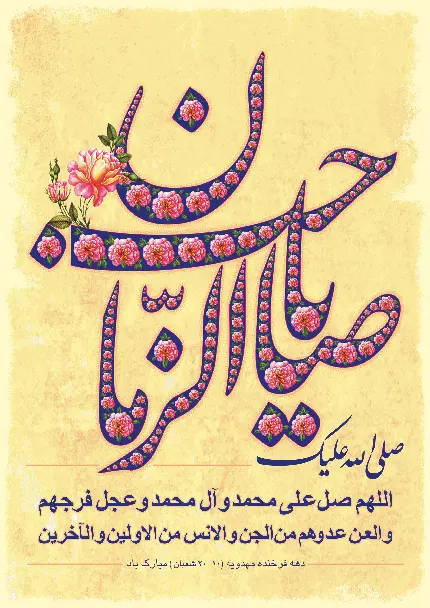 یا صاحب الزمان
صلی الله علیک
اللهم صل علی محمد و آل محمد و عجل فرجهم
والعن عدوهم من الجن والانس من الاولین والآخرین
دهه فرخنده مهدویه (۱۰-۲۰ شعبان) مبارک باد